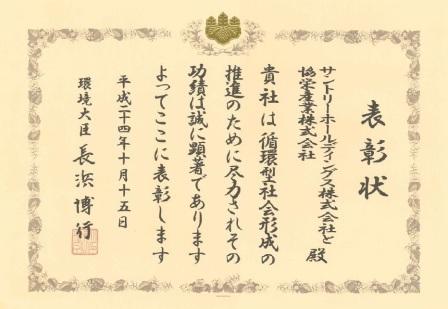 表彰状
サントリーホールディングス株式会社と
協栄産業株式会社
殿
貴社は循環型社会形成の
推進のために尽力されその
功績は誠に顕著であります
よってここに表彰します
平成二十四年十月十五日
環境大臣 長浜博行